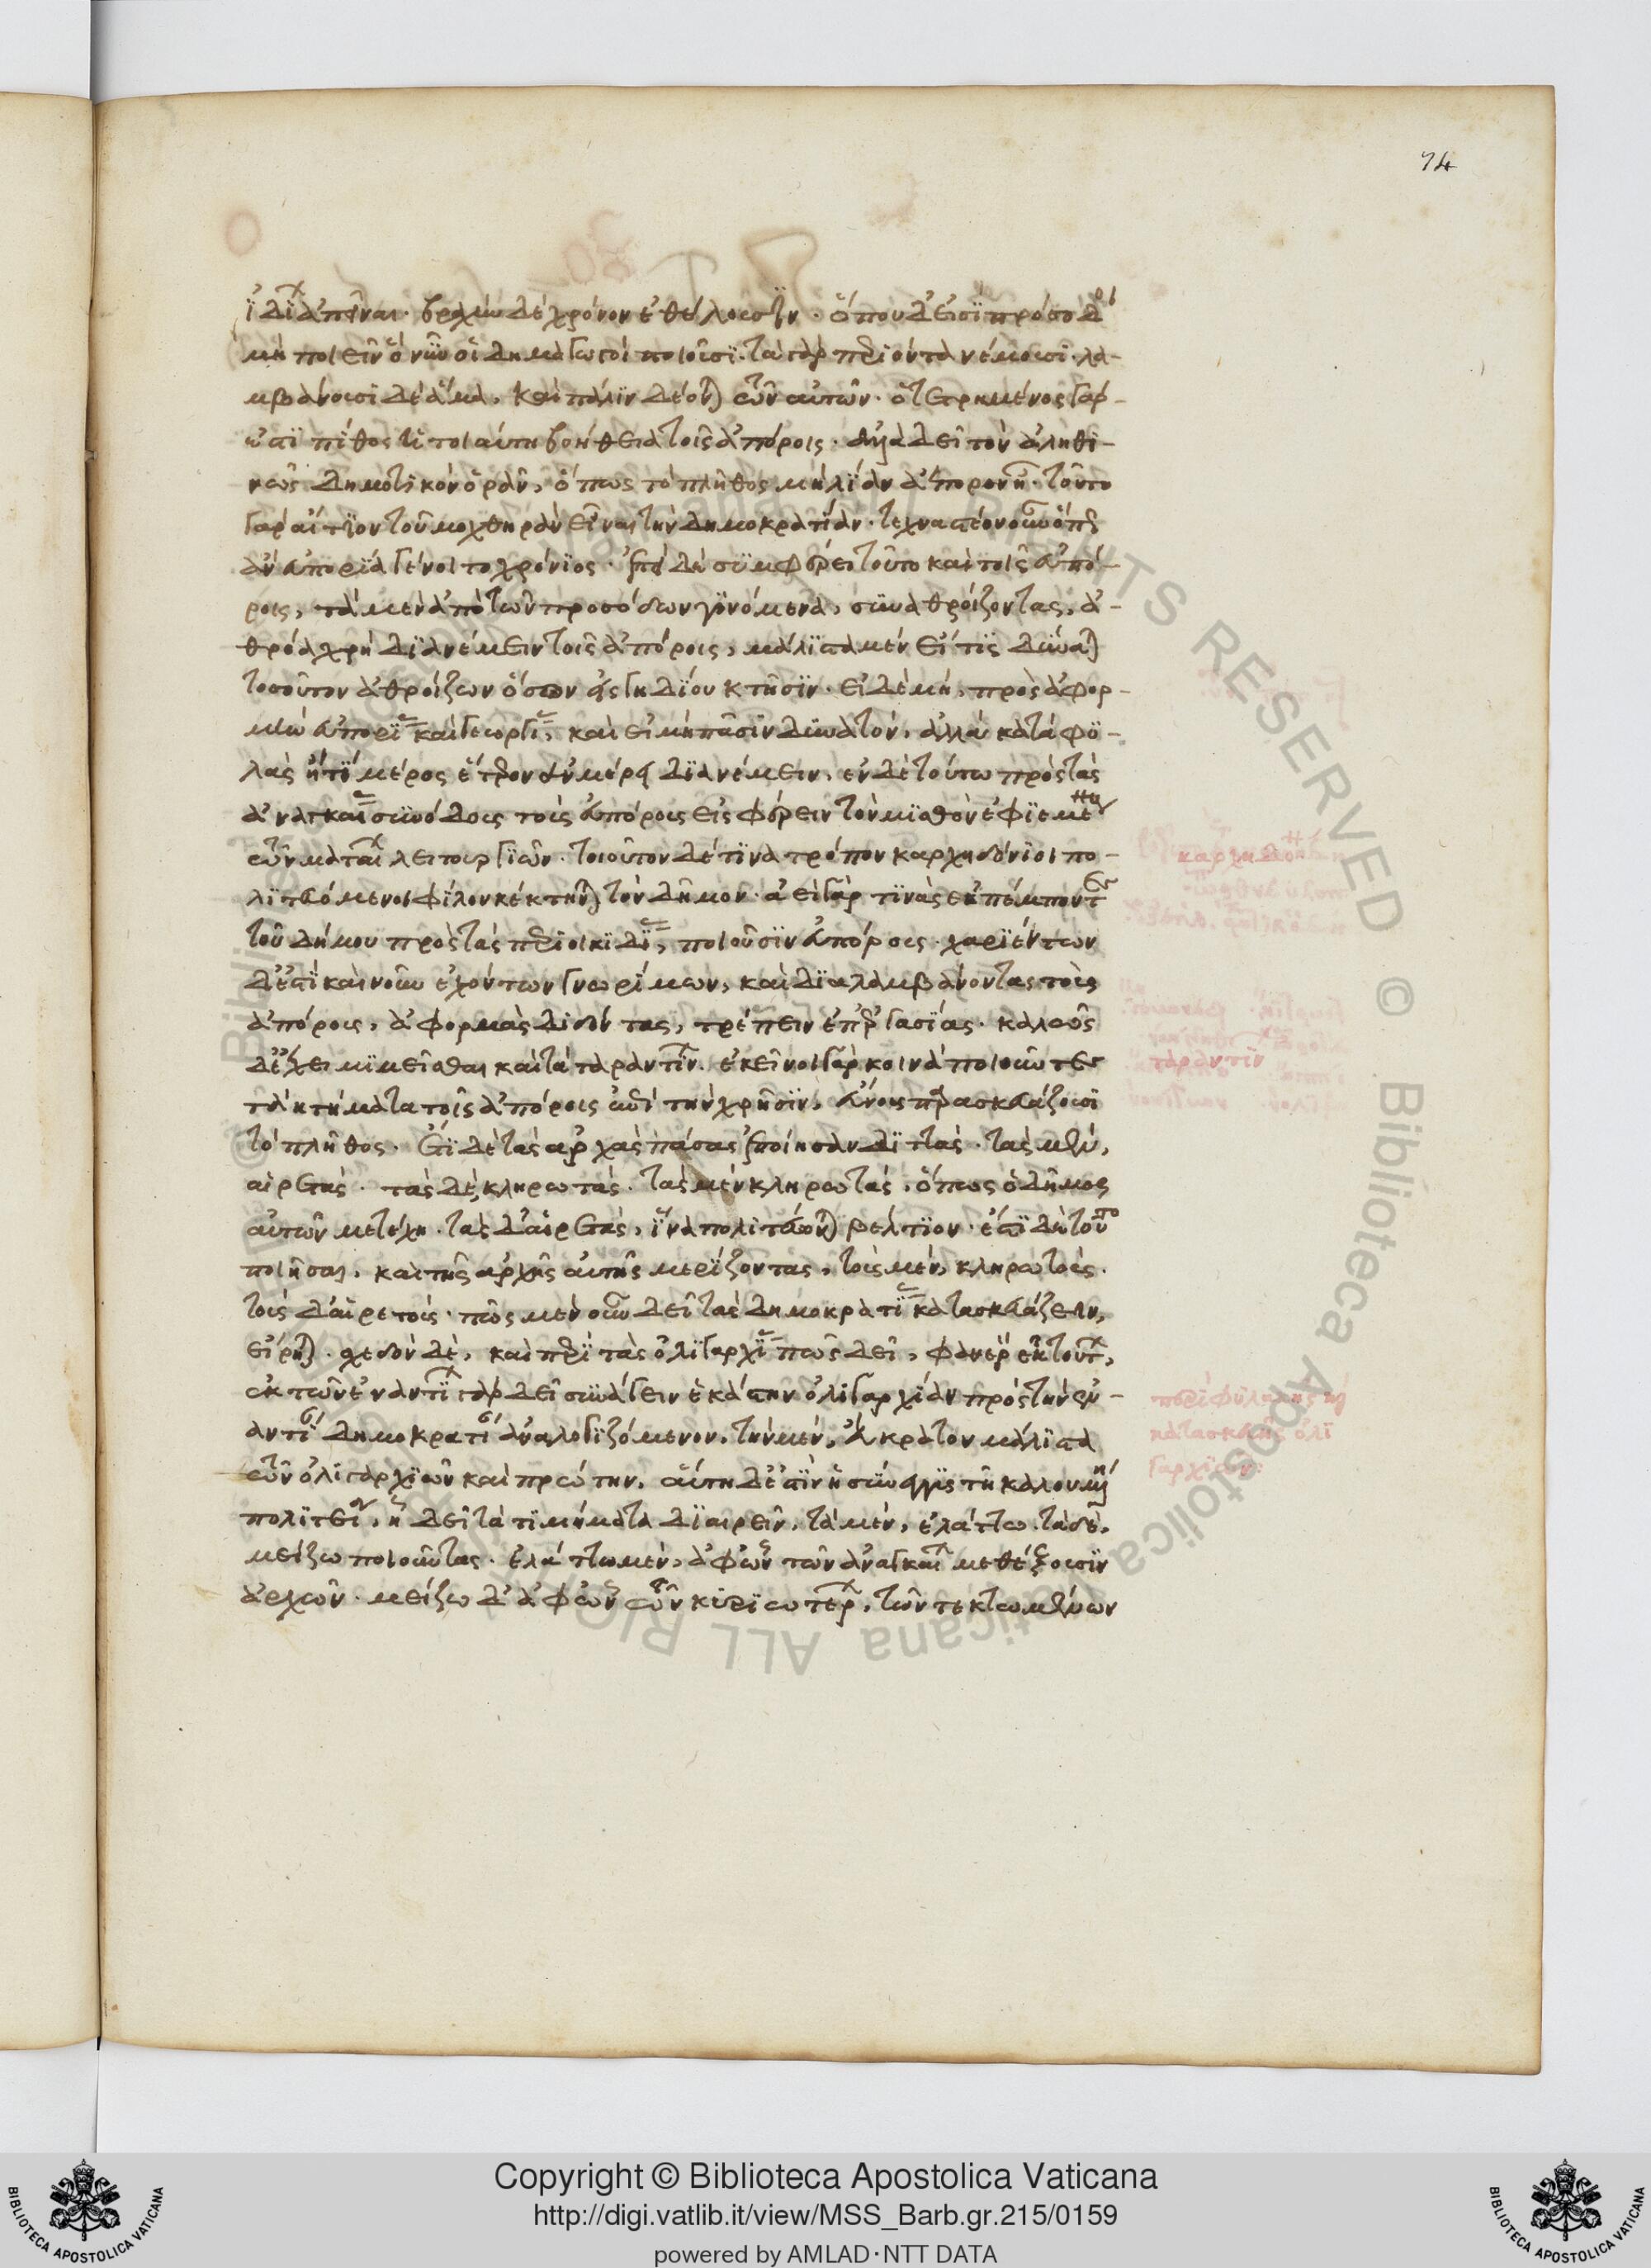 74
ἰδίων ἀπεῖναι· βραχὺν δὲ χρόνον ἐθέλουσιν· ὅπου δ' εἰσὶ πρόσοδοι
μὴ ποιεῖν ὃ νῦν οἱ δημαγωγοὶ ποιοῦσι· τὰ γὰρ περιόντα νέμουσι· λα-
μβάνουσι δὲ ἅμα, καὶ πάλιν δέονται τῶν αὐτῶν· ὁ τετρημένος γάρ
ἐστι πίθος ἡ τοιαύτη βοήθεια τοῖς ἀπόροις· ἀλλὰ δεῖ τὸν ἀληθι-
νῶς δημοτικὸν ὁρᾶν, ὅπως τὸ πλῆθος μὴ λίαν ἄπορον ᾖ· τοῦτο
γὰρ αἴτιον τοῦ μοχθηρὰν εἶναι τὴν δημοκρατίαν· τεχναστέον οὖν ὅπως
ἂν εὐπορία γένοιτο χρόνιος· ἐπεὶ δὲ συμφέρει τοῦτο καὶ τοῖς εὐπό-
ροις, τὰ μὲν ἀπὸ τῶν προσόδων γινόμενα, συναθροίζοντας, ἀ-
θρόα χρὴ διανέμειν τοῖς ἀπόροις, μάλιστα μὲν εἴ τις δύναται
τοσοῦτον ἀθροίζων ὅσον εἰς γηδίου κτῆσιν· εἰ δὲ μὴ, πρὸς ἀφορ-
μὴν ἐμπορίας καὶ γεωργίας, καὶ εἰ μὴ πᾶσιν δυνατόν, ἀλλὰ κατὰ φυ-
λὰς ἤ τι μέρος ἕτερον ἐν μέρει διανέμειν, ἐν δὲ τούτῳ πρὸς τὰς
ἀναγκαίας συνόδους τοὺς εὐπόρους εἰσφέρειν τὸν μισθὸν ἐφιεμένους
τῶν ματαίων λειτουργιῶν· τοιοῦτον δέ τινα τρόπον καρχηδόνιοι πο-
λιτευόμενοι φίλον κέκτηνται τὸν δῆμον· ἀεὶ γάρ τινας ἐκπέμποντες
τοῦ δήμου πρὸς τὰς περιοικίδας, ποιοῦσιν εὐπόρους· χαριέντων
δ' ἐστὶ καὶ νοῦν ἐχόντων γνωρίμων, καὶ διαλαμβάνοντας τοὺς
ἀπόρους, ἀφορμὰς διδόντας, τρέπειν ἐπ' ἐργασίας· καλῶς
δ' ἔχει μιμεῖσθαι καὶ τὰ ταραντίνων· ἐκεῖνοι γὰρ κοινὰ ποιοῦντες
τὰ κτήματα τοῖς ἀπόροις ἐπὶ τὴν χρῆσιν, εὔνουν παρασκευάζουσι
τὸ πλῆθος· ἔτι δὲ τὰς ἀρχὰς πάσας ἐποίησαν διττάς· τὰς μὲν,
αἱρετάς· τὰς δὲ, κληρωτάς· τὰς μὲν κληρωτάς, ὅπως ὁ δῆμος
αὐτῶν μετέχῃ· τὰς δ' αἱρετάς, ἵνα πολιτεύωνται βέλτιον· ἔστι δὲ τοῦτο
ποιῆσαι, καὶ τῆς ἀρχῆς αὐτῆς μερίζοντας, τοὺς μὲν, κληρωτούς·
τοὺς δ' αἱρετούς· πῶς μὲν οὖν δεῖ τὰς δημοκρατίας κατασκευάζειν,
εἴρηται· σχεδὸν δὲ, καὶ περὶ τὰς ὀλιγαρχίας πῶς δεῖ, φανερὸν ἐκ τούτων,
ἐκ τῶν ἐναντίων γὰρ δεῖ συνάγειν ἑκάστην ὀλιγαρχίαν πρὸς τὴν ἐν-
αντίαν δημοκρατίαν ἀναλογιζόμενον, τὴν μὲν, εὔκρατον μάλιστα
τῶν ὀλιγαρχιῶν καὶ πρώτην, αὕτη δ' ἐστὶν ἡ σύνεγγυς τῇ καλουμένῃ
πολιτείᾳ, ᾗ δεῖ τὰ τιμήματα διαιρεῖν, τὰ μὲν, ἐλάττω· τὰ δὲ,
μείζω ποιοῦντας· ἐλάττω μὲν, ἀφ' ὧν τῶν ἀναγκαίων μεθέξουσιν
ἀρχῶν· μείζω δ' ἀφ' ὧν τῶν κυριωτέρων, τῶν τε κτωμένων
καρχηδο
ταραντιν
περὶ φυλακῆς καὶ
κατασκευῆς ὀλι
γαρχιῶν:
© Biblioteca Apostolica Vaticana ALL RIGHTS RESERVED
BIBLIOTECA APOSTOLICA VATICANA
Copyright © Biblioteca Apostolica Vaticana
http://digi.vatlib.it/view/MSS_Barb.gr.215/0159
powered by AMLAD·NTT DATA
BIBLIOTECA APOSTOLICA VATICANA